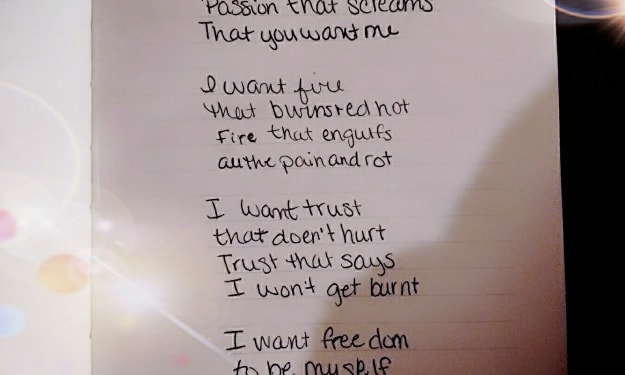 Passion that screams
That you want me
I want fire
that burns red hot
Fire that engulfs
all the pain and rot
I want trust
that doen't hurt
Trust that says
I won't get burnt
I want freedom
to be myself